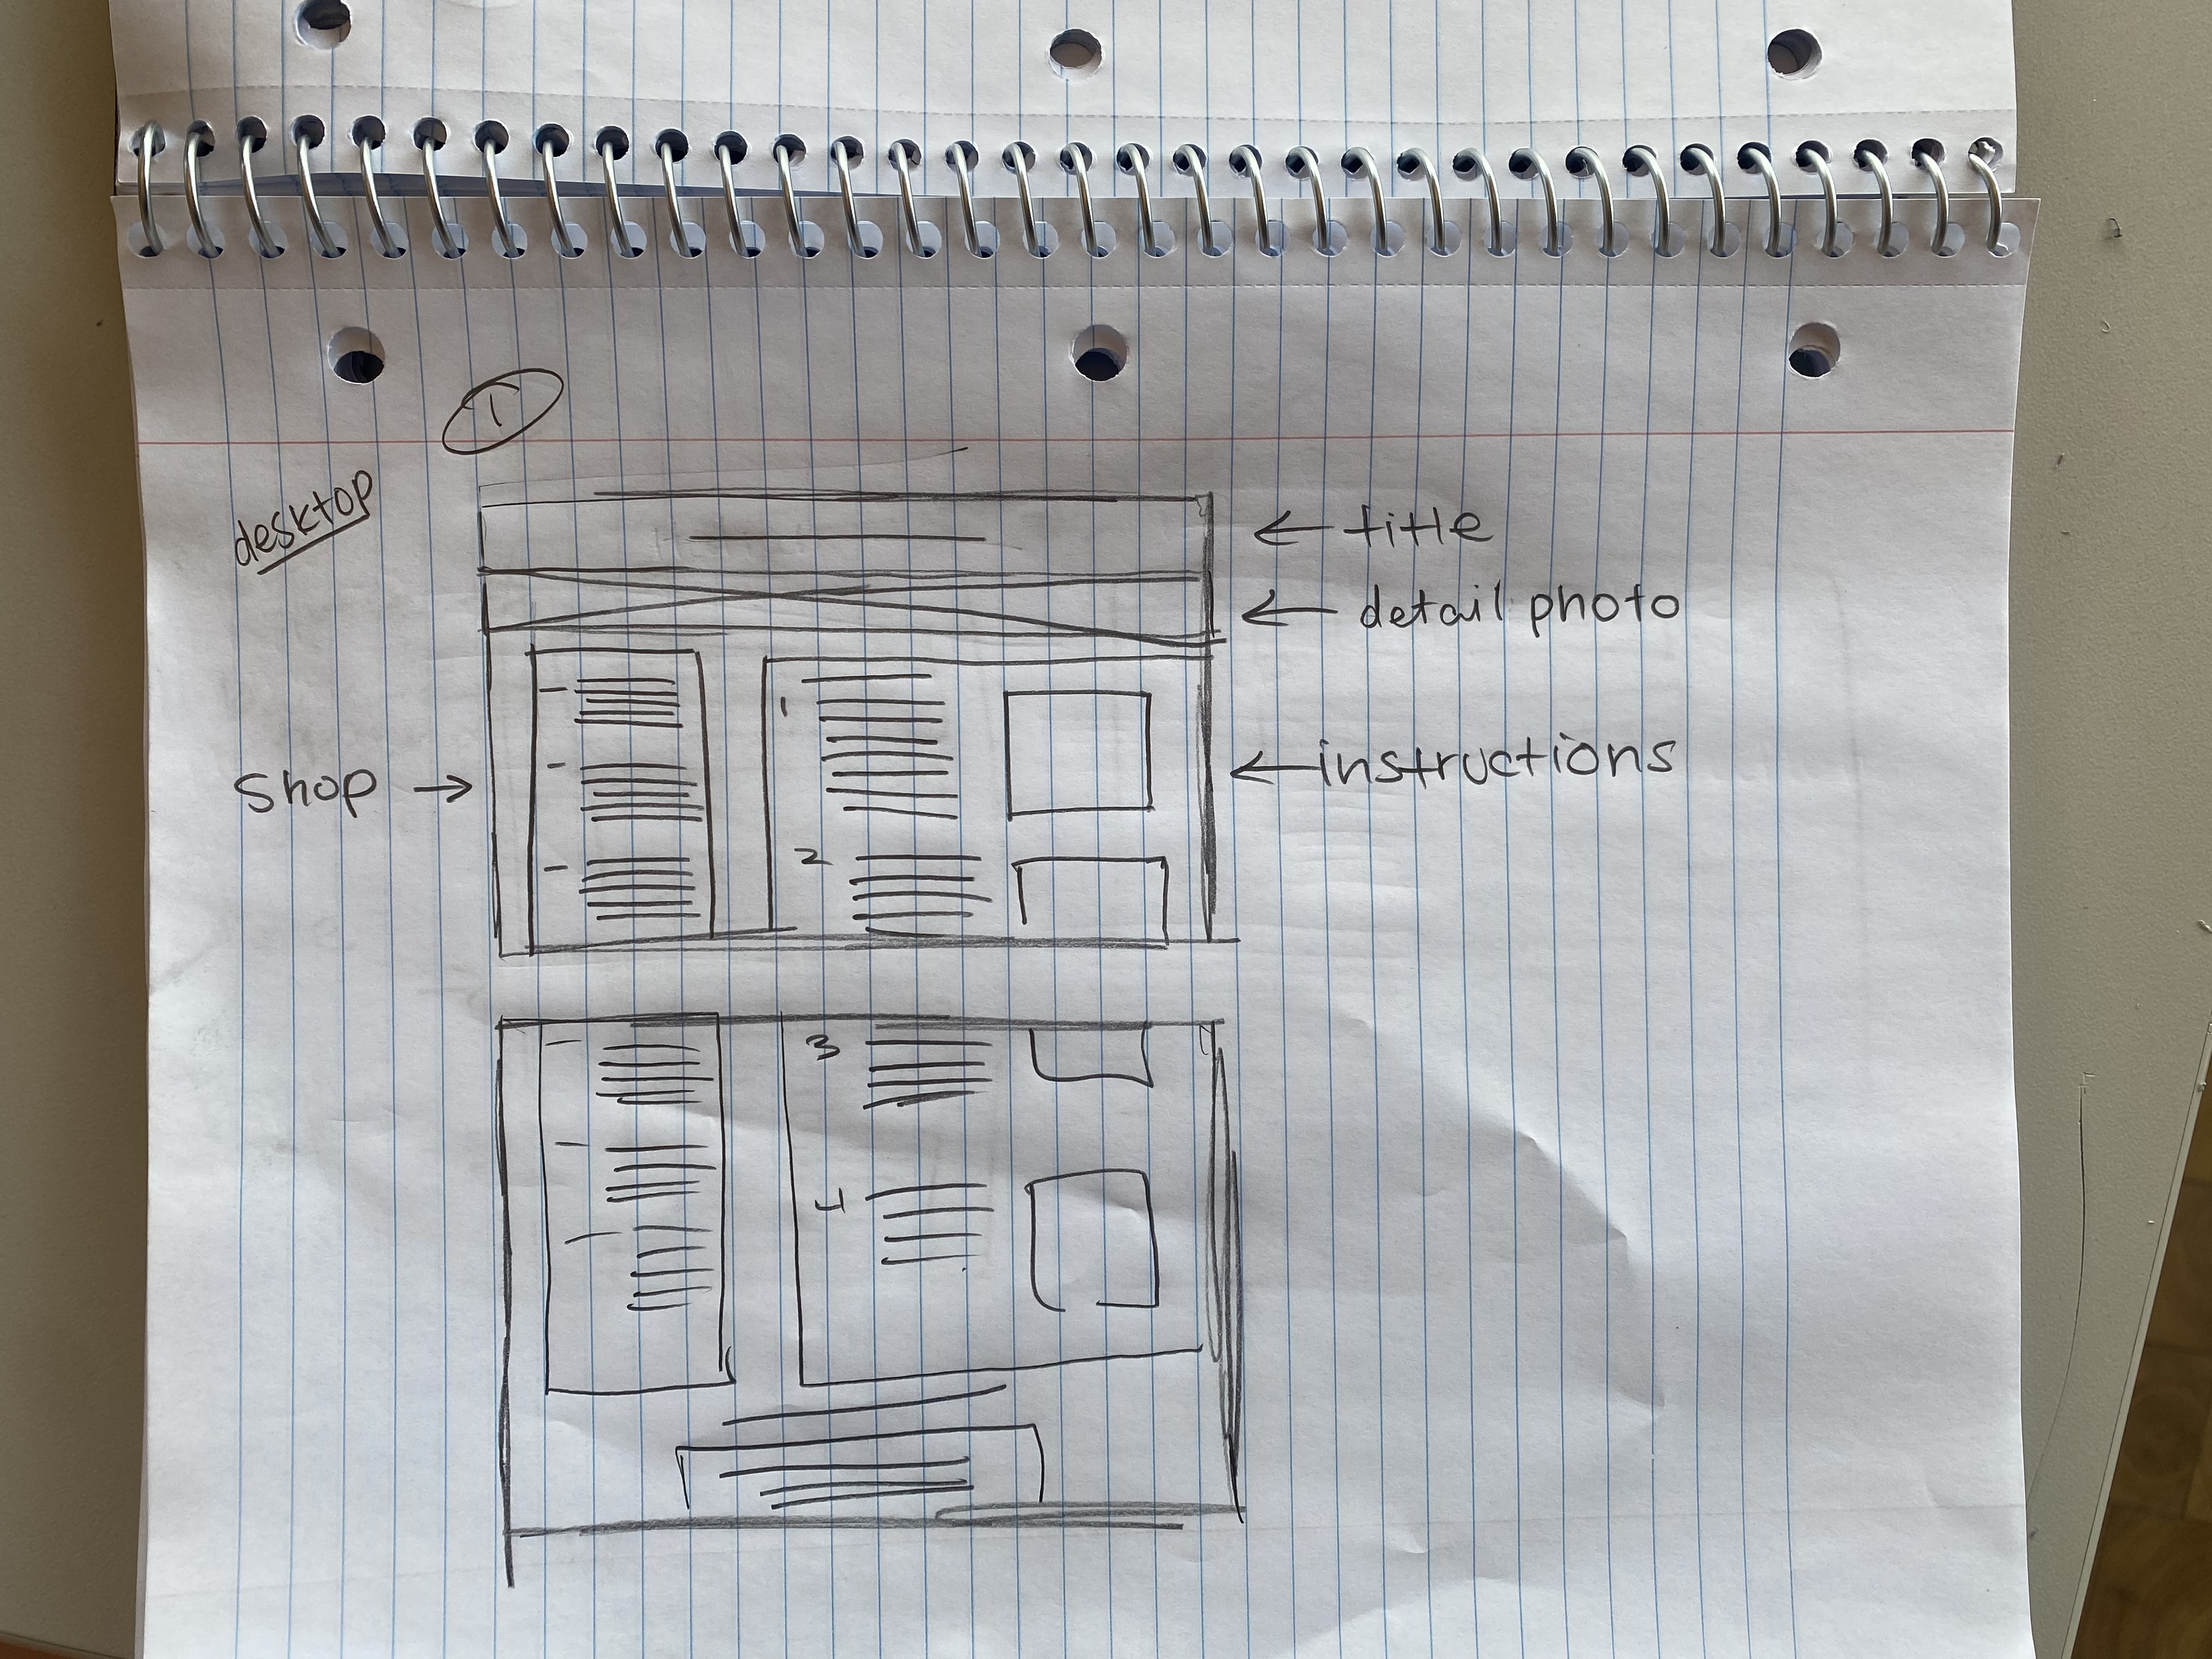 1
desktop
← title
← detail photo
1
Shop →
← instructions
2
3
4